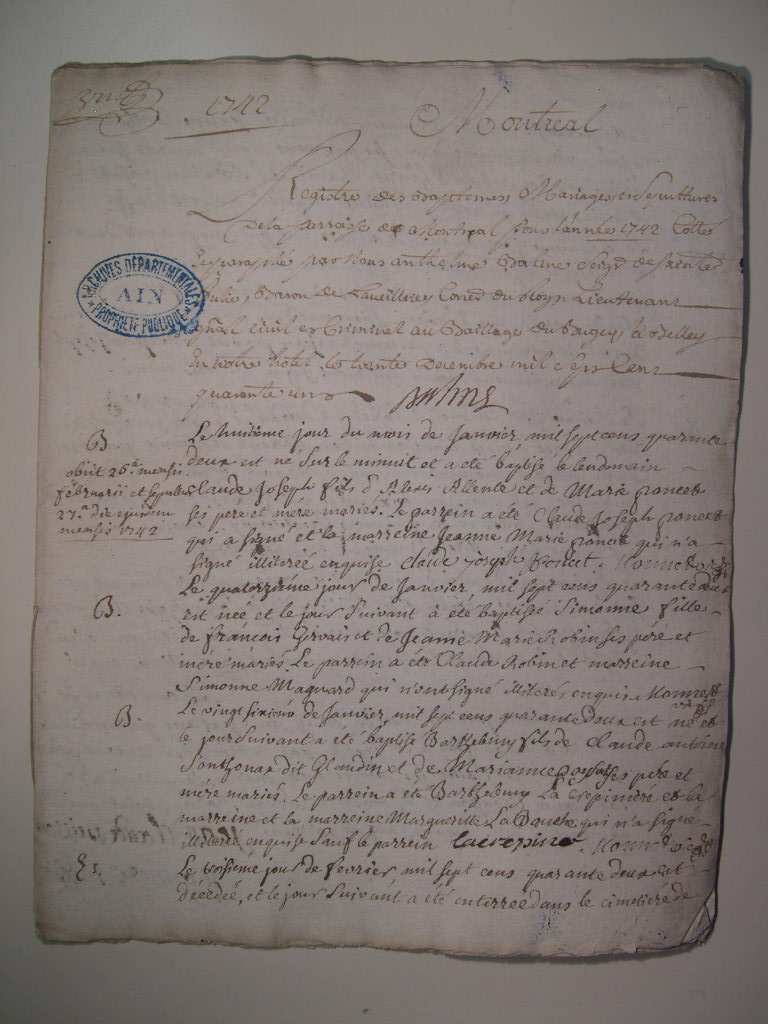 1742
Montreal
Registre des Baptemes Mariages et Sepultures
de la parroisse de Montreal pour l'année 1742 Cotté
et paraphé par Nous anthelme Seigr de
Baron de Coner du Roy Lieutenant
gñal Civil et Criminel au Bailliage du Bugey à Belley
En notre hotel le trente Decembre mil sept Cent
quarante un
ARCHIVES DÉPARTEMENTALES
AIN
PROPRIÉTÉ PUBLIQUE
B
obiit 26a mensis
februarii et sepultus
27a die ejusdem
mensis 1742
Le huitième jour du mois de Janvier, mil sept cens quarante
deux est né sur le minuit et a été baptisé le lendemain
Claude Joseph fils d'Alexis Allente et de Marie poncet
ses pere et mére mariés. Le parrein a été Claude Joseph poncet
qui a signé et la marreine Jeanne Marie poncet qui n'a
signé illiterée enquise Claude Joseph Poncet.
B.
Le quatorzieme jour de Janvier, mil sept cens quarante deux
est née et le jour Suivant a été baptisée Simonne fille
de françois Gervais et de Jeanne Marie Robin ses pére et
mére mariés. Le parrein a été Claude Robin et marreine
Simonne Magnard qui n'ont signé illiterés enquis
B.
Le vingt sixieme de Janvier, mil sept cens quarante deux est né et
le jour Suivant a été baptisé Barthelemy fils de Claude antoine
Sonthonax dit Glaudin et de Marianne ses pére et
mére mariés. Le parrein a été Barthelemy La Crepiniere et la
marreine et la marreine Marguerite La Douche qui n'a signé
illiterée enquise Sauf le parrein lacrepiniere.
Le troisième jour de fevrier, mil sept cens quarante deux est
décédée, et le jour Suivant a été enterrée dans le cimetiére de